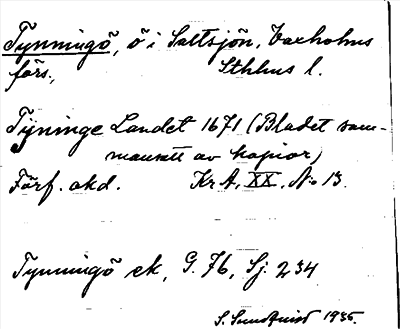 Tynningö, ö i Saltsjön, Vaxholms
förs., Sthlms l.
Tÿninge Landet 1671 (Bladet sam-
mansatt av kopior)
Förf. okd. Kr A, XX, No 13.
Tynningö ek, G. 76, Sj. 234
S. Sundquist 1935.